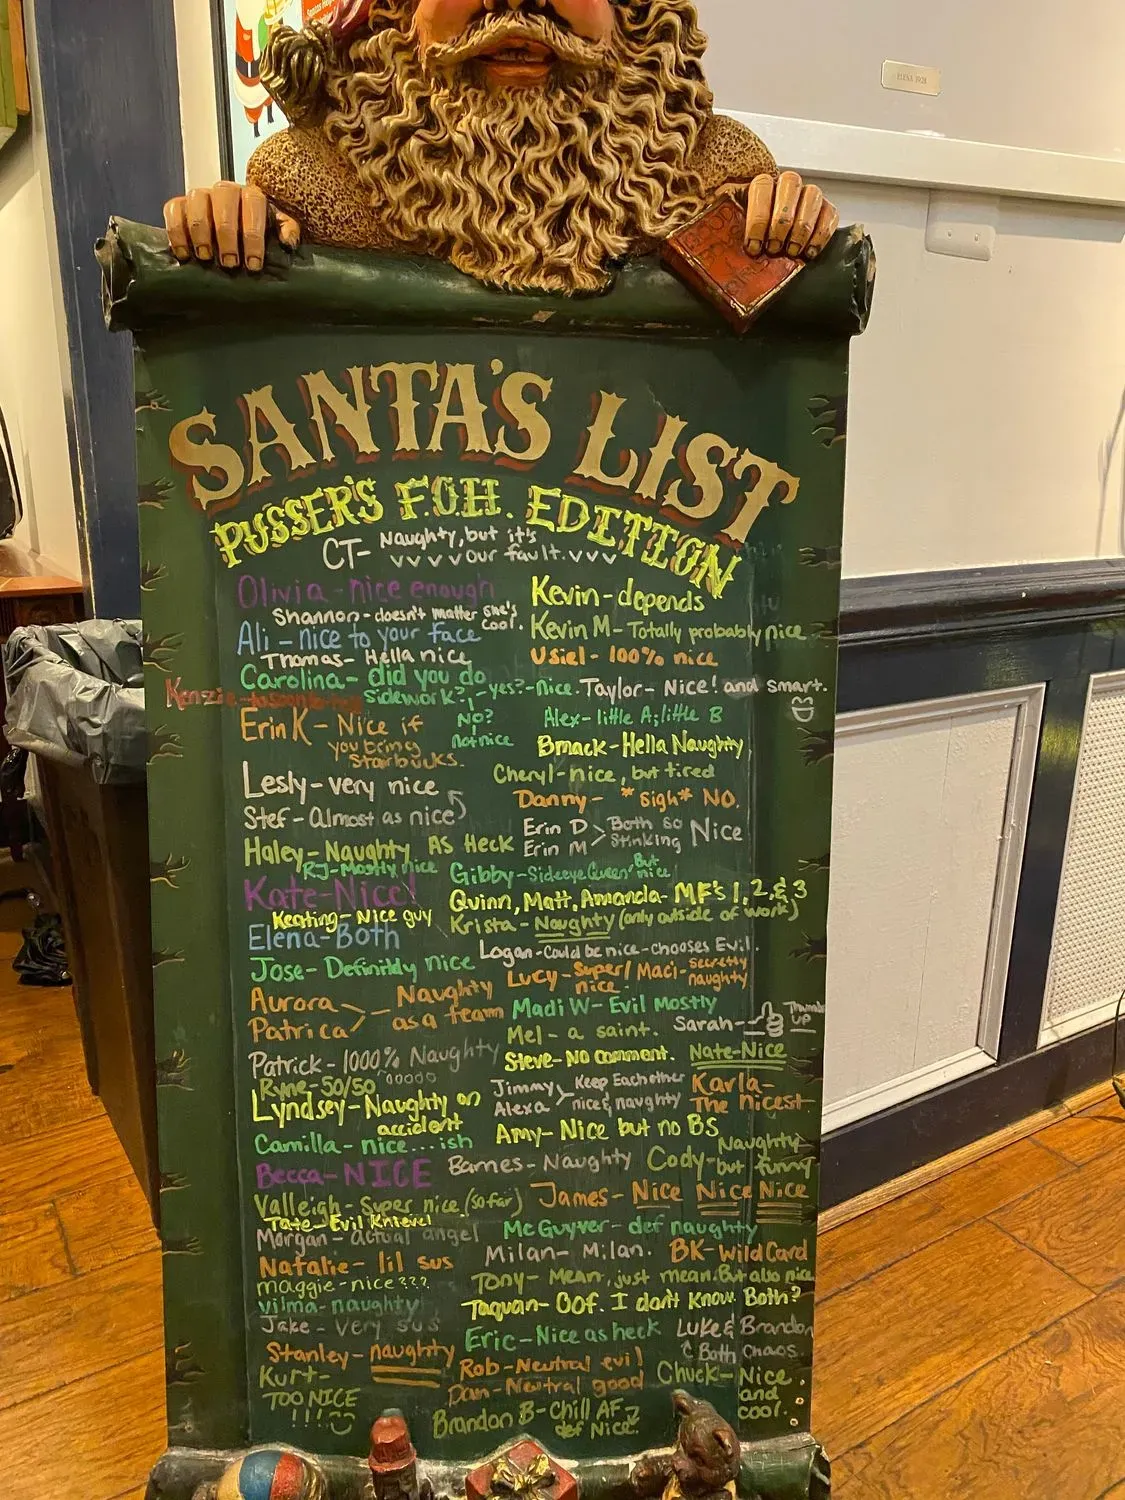 SANTA'S LIST
PUSSER'S F.O.H. EDITION
CT- Naughty, but it's
vvvv our fault. vvv
Olivia - nice enough
Shannon - doesn't matter she's
cool.
Ali - nice to your face
Thomas - Hella nice
Carolina - did you do
sidework? - yes? - nice.
No?
not nice
Kenzie
Erin K - Nice if
you bring
Starbucks.
Lesly - very nice
Stef - Almost as nice
Haley - Naughty AS Heck
RJ - Mostly nice
Kate - Nice!
Keating - Nice guy
Elena - Both
Jose - Definitldy nice
Aurora
Patrica
- Naughty
as a team
Patrick - 1000% Naughty
Ryne - 50/50
Lyndsey - Naughty on
accident
Camilla - nice...ish
Becca - NICE
Valleigh - Super nice (so far)
Tate - Evil Knievel
Morgan - actual angel
Natalie - lil sus
maggie - nice???
vilma - naughty!
Jake - Very sus
Stanley - naughty
Kurt -
TOO NICE
!!!
Kevin - depends
Kevin M - Totally probably nice
Usiel - 100% nice
Taylor - Nice! and smart.
Alex - little A; little B
Bmack - Hella Naughty
Cheryl - nice, but tired
Danny - *sigh* NO.
Erin D
Erin M
> Both so
stinking Nice
Gibby - Sideeye Queen But
nice
Quinn, Matt, Amanda - MF's 1, 2, & 3
Krista - Naughty (only outside of work)
Logan - Could be nice - chooses Evil.
Lucy - Super
nice
/ Maci - secretly
naughty
Madi W - Evil Mostly
Mel - a saint.
Sarah -
Thumbs
UP
Steve - No comment.
Nate - Nice
Jimmy
Alexa
Keep Each other
nice & naughty
Karla -
The nicest
Amy - Nice but no BS
Barnes - Naughty
Cody - Naughty
but funny
James - Nice Nice Nice
McGuyver - def naughty
Milan - Milan.
BK - Wild Card
Tony - Mean, just mean. But also nice
Taquan - Oof. I don't know. Both?
Eric - Nice as heck
Luke & Brandon
Both Chaos.
Rob - Neutral evil
Dan - Neutral good
Chuck - Nice.
and
cool.
Brandon B - Chill AF
def Nice.